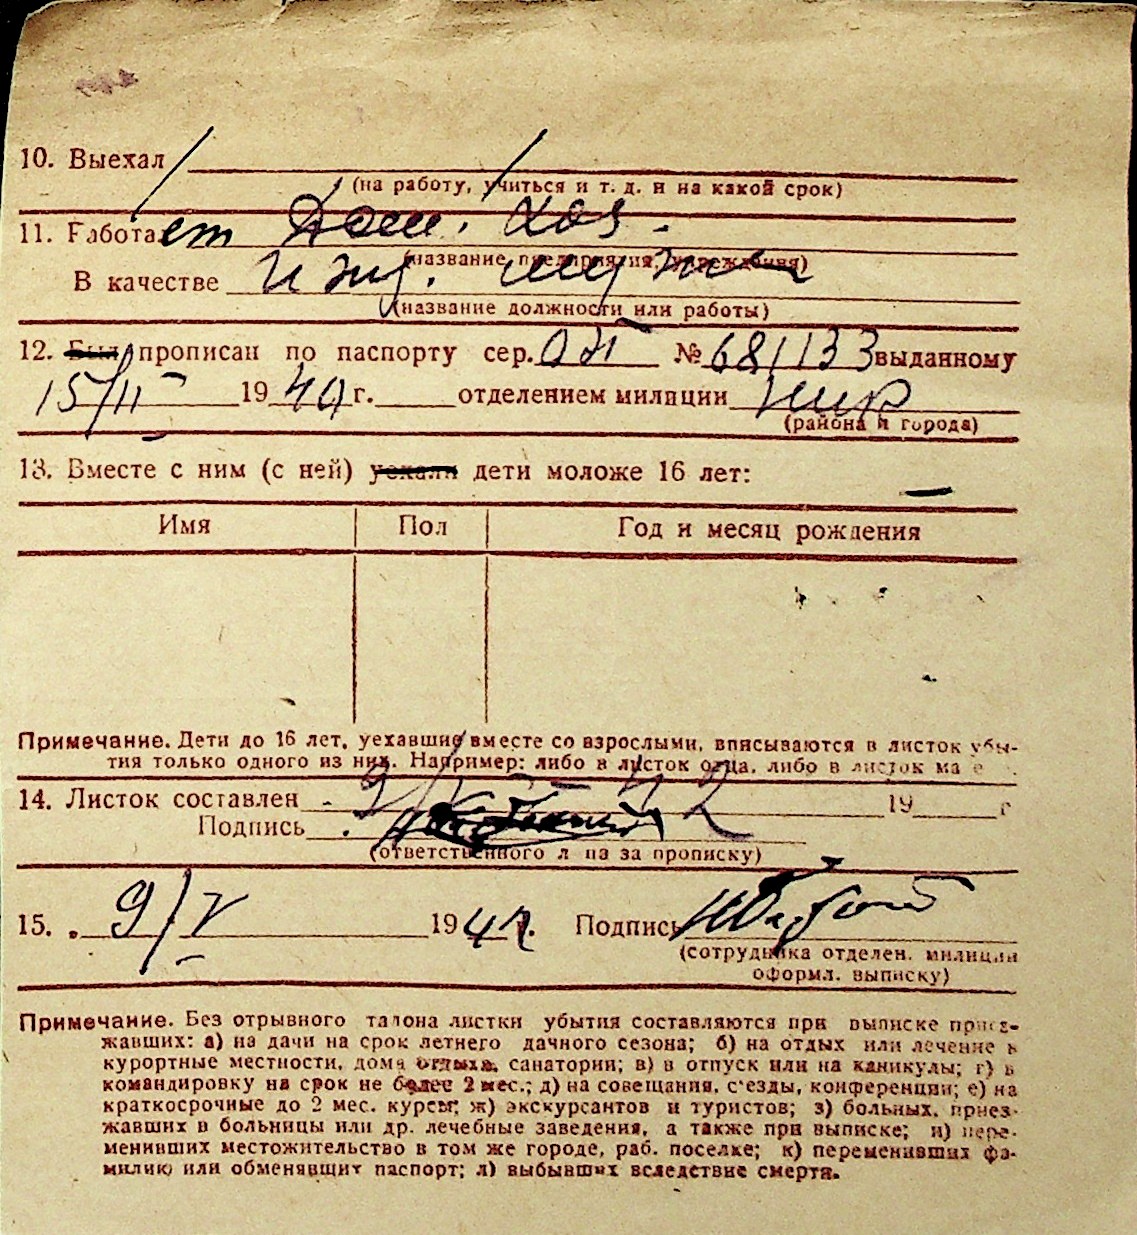 10. Выехал
(на работу, учиться и т. д. и на какой срок)
11. Работает Дом. хоз.
(название предприятия, учреждения)
В качестве ижд. мужа
(название должности или работы)
12. Был прописан по паспорту сер. № 681133 выданному
15/II 1940 г. отделением милиции
(района и города)
13. Вместе с ним (с ней) уехали дети моложе 16 лет: —
Имя Пол Год и месяц рождения
Примечание. Дети до 16 лет, уехавшие вместе со взрослыми, вписываются в листок убы-
тия только одного из них. Например: либо в листок отца, либо в листок ма
14. Листок составлен 42 19 г
Подпись
(ответственного л ца за прописку)
15. 9/V 1942 г. Подпись
(сотрудника отделен. милиции
оформл. выписку)
Примечание. Без отрывного талона листки убытия составляются при выписке приез-
жавших: а) на дачи на срок летнего дачного сезона; б) на отдых или лечение в
курортные местности, дома отдыха, санатории; в) в отпуск или на каникулы; г) в
командировку на срок не более 2 мес.; д) на совещания, с'езды, конференции; е) на
краткосрочные до 2 мес. курсы; ж) экскурсантов и туристов; з) больных, приез-
жавших в больницы или др. лечебные заведения, а также при выписке; и) пере-
менивших местожительство в том же городе, раб. поселке; к) переменивших фа-
милию или обменявших паспорт; л) выбывших вследствие смерти.